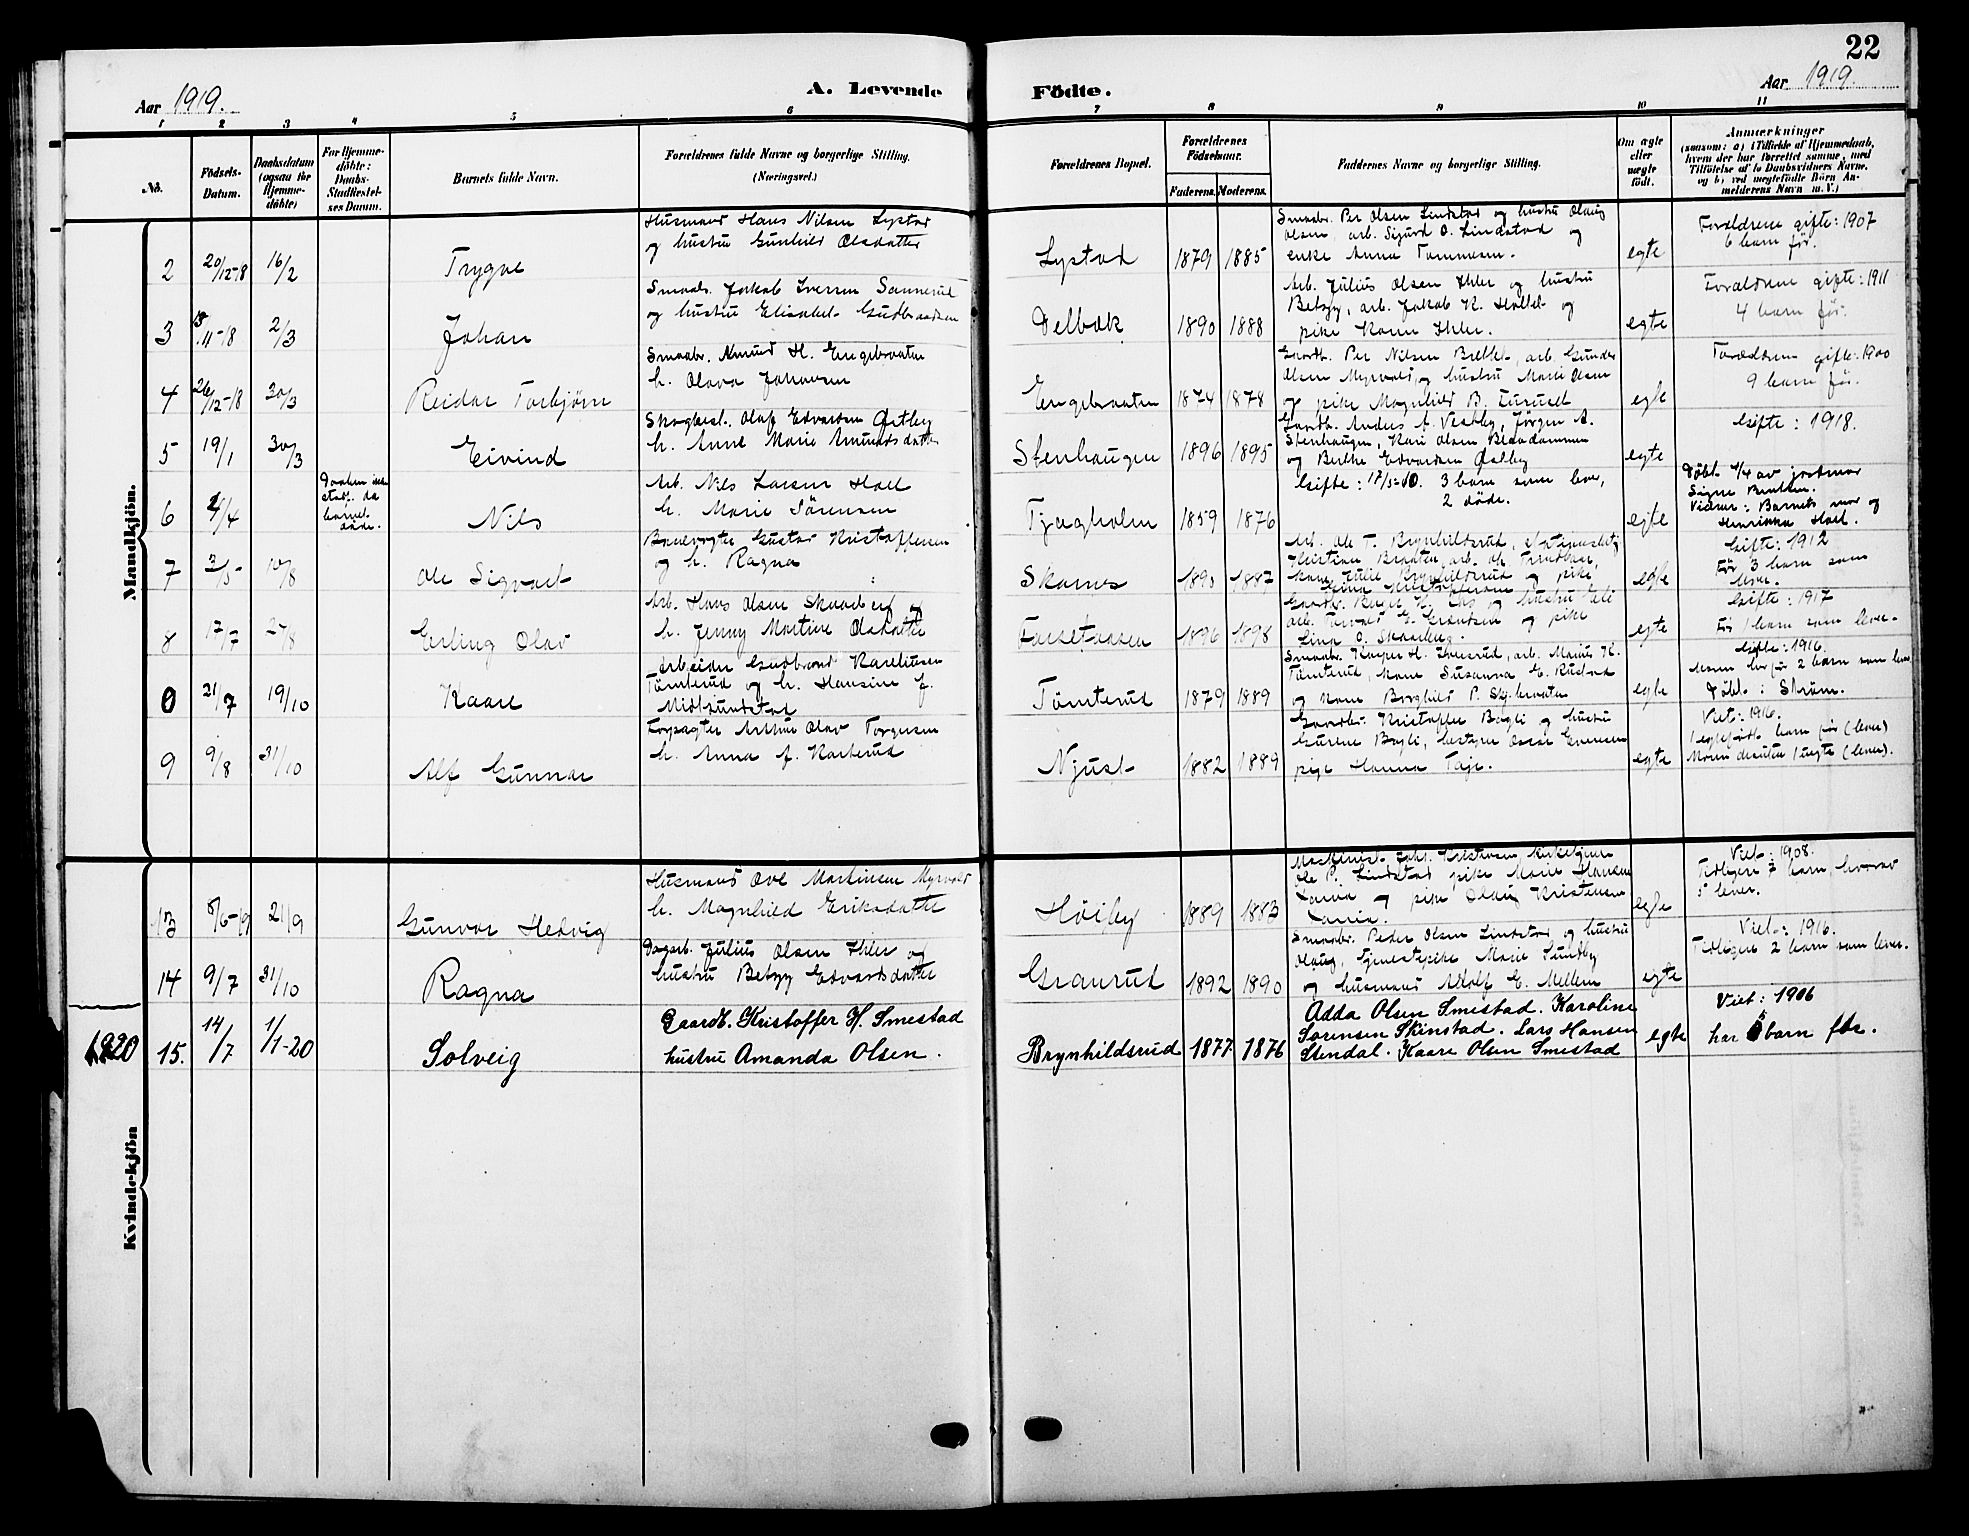 22
Aar 1919.
A. Levende
Födte.
Aar 1919.
1 2 3 4 5 6 7 8 9 10 11
No.
Födsels-
Datum.
Daabsdatum
(ogsaa for
Hjemme-
döbte)
For Hjemme-
döbte:
Daabs-
Stadfæstel-
ses Datum.
Barnets fulde Navn.
Forældrenes fulde Navne og borgerlige Stilling.
(Næringsvei.)
Forældrenes Bopæl.
Forældrenes
Födselsaar.
Faderens. Moderens.
Faddernes Navne og borgerlige Stilling.
Om ægte
eller
uægte
födt.
Anmærkninger
(saasom: a) i Tilfælde af Hjemmedaab,
hvem der har forrettet samme, med
Tilföielse af to Daabsvidners Navne.
og b) ved uægtefödte Börn An-
melderens Navn m. V.)
Mandkjön.
2 20/12-18 16/2 Trygve
Husmand Hans Nilsen Lystad
og hustru Gunhild Olsdatter
Lystad 1879 1885
Smaabr. Per Olsen Lindstad og hustru Olaug
Olsen, arb. Sigurd O. Lindstad og
enke Anna Tommesen.
egte
Forældrene gifte: 1907
6 barn før.
3 11-18 2/3 Johan
Smaabr. Jakob Iversen Sannerud
og hustru Elisabet Gudbrandsen
Delbæk 1890 1888
Arb. Julius Olsen Ihler og hustru
Betzy, arb. Jakob K. Holtet og
pike Karen Ihler.
egte
Forældrene gifte: 1911
4 barn før.
4 26/12-18 30/3 Reidar Torbjørn
Smaabr. Amund H. Engebraaten
h. Olava Johansen
Engebraaten 1874 1878
Gaardb. Per Nilsen Bretlet, arb. Gunder
Olsen Myrvold og hustru Marie Olsen
og pike Magnhild B. Furuset
egte
Forældrene gifte: 1900
9 barn før.
5 19/1 30/3 Eivind
Skogbest. Olaf Edvardsen Østby
h. Anne Marie Amundsdatter
Stenhaugen 1896 1895
Gaardb. Anders A. Vestby, Jørgen A.
Stenhaugen, Kari Olsen Blaadammen
og Berthe Edvardsen Østby
egte
Gifte: 1918.
6 4/4
Daaben ikke
stadf. da
barnet
døde.
Nils
Arb. Nils Larsen Hoel
h. Marie Sörensen
Tjægholm 1859 1876
Gifte: 17/5-00. 3 barn som lever,
2 döde.
egte
Døbt 4/4 av jordmor
Signe Bentsen.
Vidner: Barnets mor og
Henrikka Hoel.
7 3/5 10/8 Ole Sigvart
Banevogter Gustav Kristoffersen
og h. Ragna
Skarnes 1890 1887
Arb. Ole T. Brynhildsrud,
Kristian Braaten, arb.
kone Julie Brynhildsrud og pike
egte
Gifte: 1912
Før 3 barn som
lever.
8 17/7 27/8 Erling Olav
Arb. Hans Olsen Skaaberg og
h. Jenny Martine Olsdatter
1896 1898
og hustru
og pike
Lina O. Skaaberg.
egte
Gifte: 1917
Før 1 barn som lever.
0 21/7 19/10 Kaare
Arbeider Gudbrand Kareliusen
Tömterud og h. Hansine f.
Midtsundstad
Tömterud 1879 1889
Smaabr. Kasper H. Iversrud, arb. Marius K.
Tömterud, kone Susanna E. Rustad
og kone Borghild P. Skjebraaten
egte
Gifte: 1916.
Moren har før 2 barn som lever
Døbt i Ström.
9 9/8 31/10 Alf Gunnar
Forpagter Arthur Olav Torgersen
h. Anna f. Korterud
Njust 1882 1889
Gaardbr. Kristoffer Bagli og hustru
Gurene Bagli, bestyrer Oscar Evensen
pige Hanna Taje.
egte
Viet: 1916.
1 egtefødt barn før (lever)
Moren desuten 1 uegte (lever).
Kvindekjön
13 8/6-19 21/9 Gunvor Hedvig
Husmand Ove Martinsen Myrvold
h. Magnhild Eriksdatter
Höiby 1889 1883
Maskinist Joh. Kristiansen, kirketjener
Ole P. Lindstad, pike Marie Hansen
og pike Olaug Kristensen
egte
Viet: 1908.
Tidligere 7 barn, hvorav
5 lever.
14 9/7 31/10 Ragna
Dagarb. Julius Olsen Ihler og
hustru Betzy Edvardsdatter
Granrud 1892 1890
Smaabr. Peder Olsen Lindstad og hustru
Olaug, tjenestepike Marie Sundby
og husmand Adolf E. Mellem
egte
Viet: 1916.
Tidligere 2 barn som lever.
1920
15. 14/7 1/1-20 Solveig
Gaardb. Kristoffer H. Smestad
hustru Amanda Olsen.
Brynhildsrud 1877 1876
Adda Olsen Smestad. Karoline
Sorensen Skinstad. Lars Hansen
Stendal. Kaare Olsen Smestad
egte
Viet: 1906
har 5 barn før.